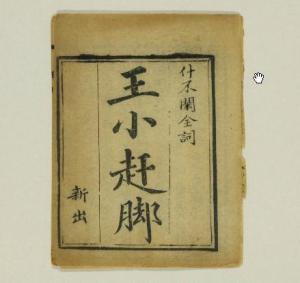 什不閑全詞
王小赶脚
新出